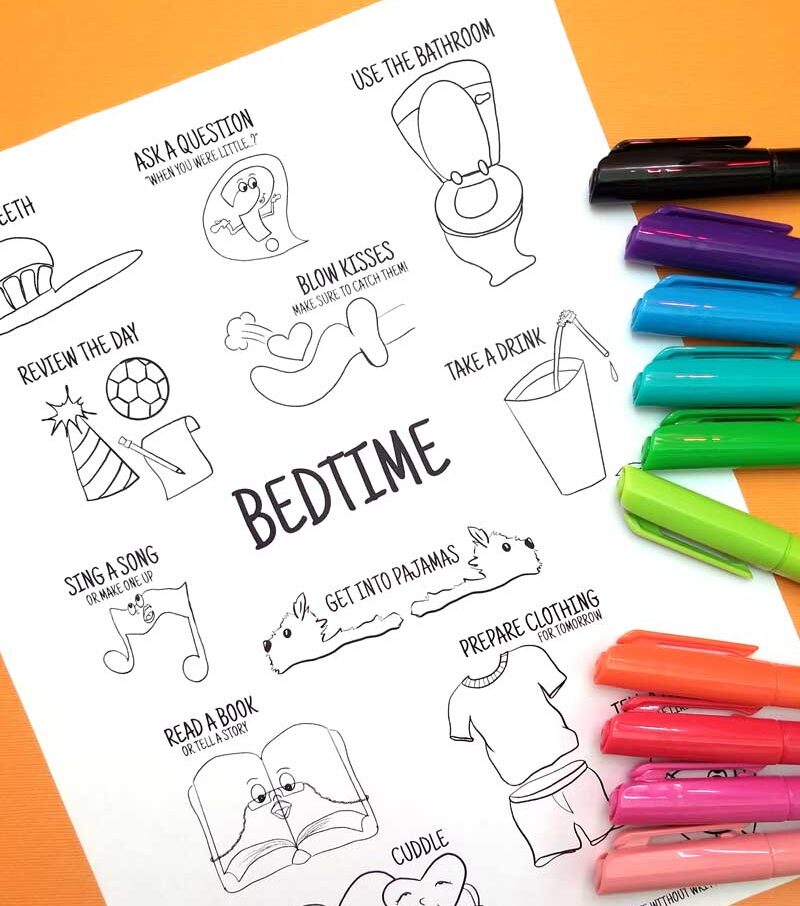 USE THE BATHROOM
ASK A QUESTION
"WHEN YOU WERE LITTLE..?"
EETH
BLOW KISSES
MAKE SURE TO CATCH THEM!
REVIEW THE DAY
TAKE A DRINK
BEDTIME
SING A SONG
OR MAKE ONE UP
GET INTO PAJAMAS
PREPARE CLOTHING
FOR TOMORROW
READ A BOOK
OR TELL A STORY
CUDDLE
WITHOUT